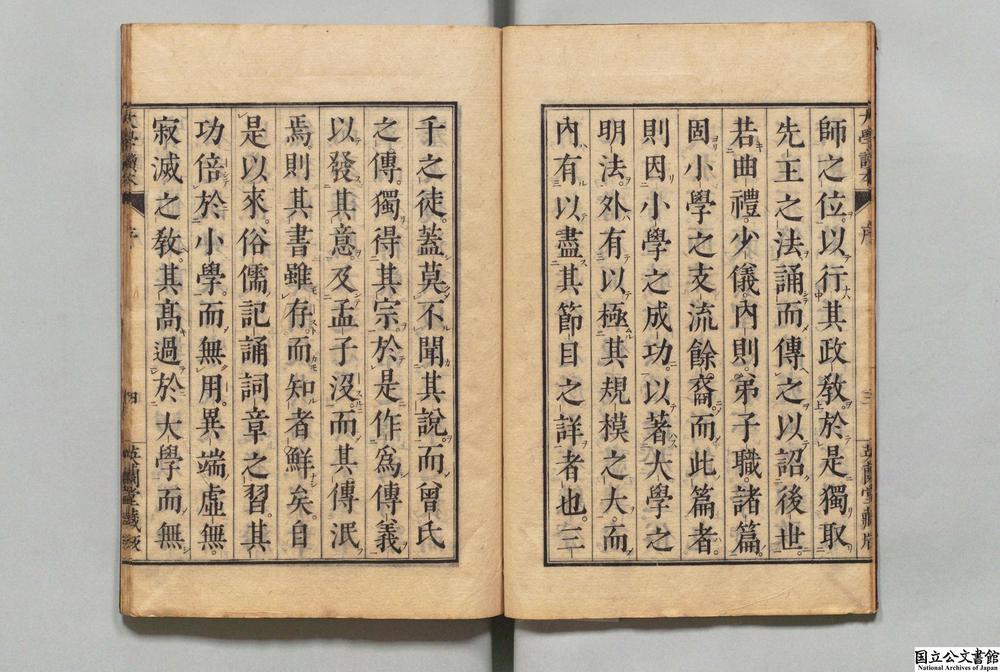 師之位。以行其政敎。於是獨取
先王之法。誦而傳之以詔後世。
若曲禮。少儀。內則。弟子職。諸篇。
固小學之支流餘裔。而此篇者。
則因小學之成功。以著大學之
明法。外有以極其規模之大而
內有以盡其節目之詳者也。三
千之徒。蓋莫不聞其說。而曾氏
之傳。獨得其宗。於是作爲傳義
以發其意。及孟子沒。而其傳泯
焉。則其書雖存。而知者鮮矣。自
是以來。俗儒記誦詞章之習。其
功倍於小學。而無用。異端虛無。
寂滅之敎。其高過於大學而無
国立公文書館
National Archives of Japan